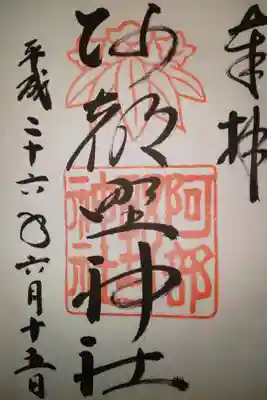 奉拝
阿部野神社
阿部
神社
平成二十六年六月十五日